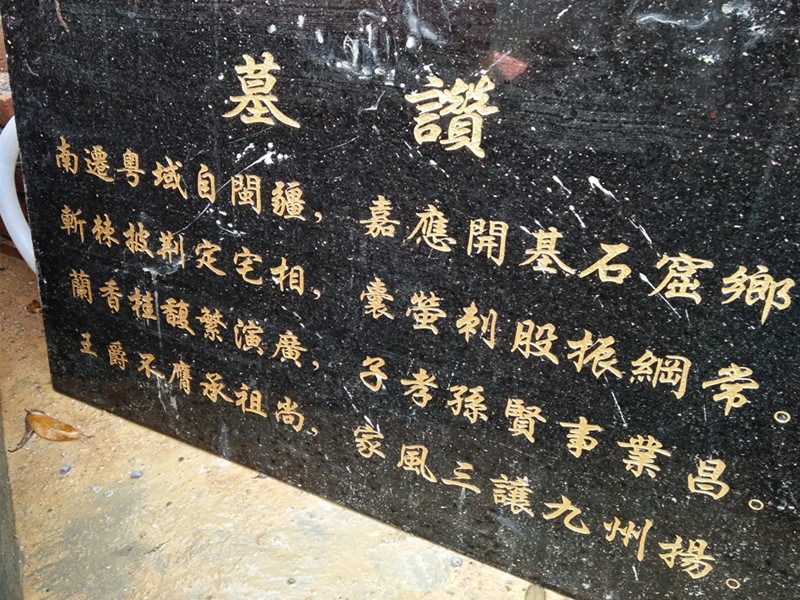 墓讚
南遷粵域自閩疆，嘉應開基石窟鄉
斬棘披荆定宅相，囊螢刺股振綱常。
蘭香桂馥繁演廣，子孝孫賢事業昌。
王爵不膺承祖尚，家風三讓九州揚。